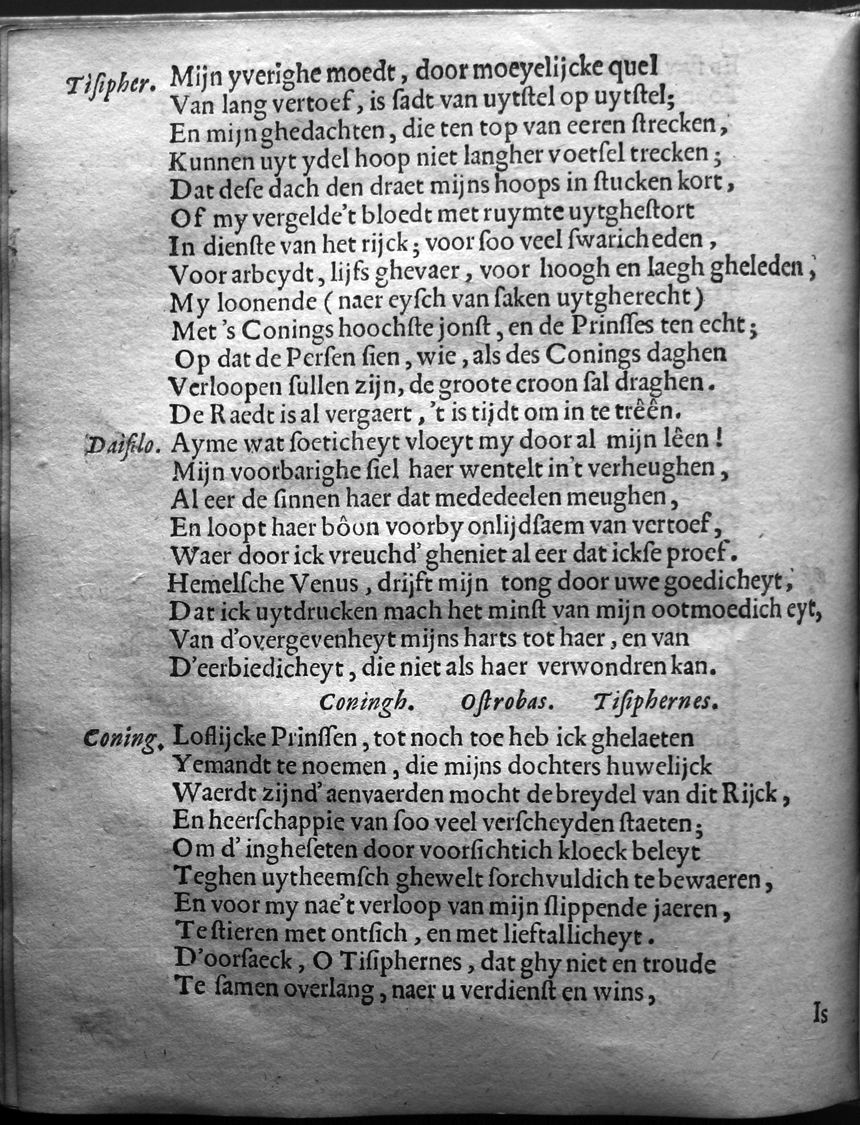 Tiſipher. Mijn yverighe moedt, door moeyelijcke quel
Van lang vertoef, is ſadt van uytſtel op uytſtel;
En mijn ghedachten, die ten top van eeren ſtrecken,
Kunnen uyt ydel hoop niet langher voetſel trecken;
Dat deſe dach den draet mijns hoops in ſtucken kort,
Of my vergelde't bloedt met ruymte uytgheſtort
In dienſte van het rijck; voor ſoo veel ſwaricheden,
Voor arbeydt, lijfs ghevaer, voor hoogh en laegh gheleden,
My loonende (naer eyſch van ſaken uytgherecht)
Met 's Conings hoochſte jonſt, en de Prinſſes ten echt;
Op dat de Perſen ſien, wie, als des Conings daghen
Verloopen ſullen zijn, de groote croon ſal draghen.
De Raedt is al vergaert, 't is tijdt om in te trêên.
Daiſilo. Ayme wat ſoeticheyt vloeyt my door al mijn lêen!
Mijn voorbarighe ſiel haer wentelt in't verheughen,
Al eer de ſinnen haer dat mededeelen meughen,
En loopt haer bôon voorby onlijdſaem van vertoef,
Waer door ick vreuchd' gheniet al eer dat ickſe proef.
Hemelſche Venus, drijft mijn tong door uwe goedicheyt,
Dat ick uytdrucken mach het minſt van mijn ootmoedicheyt,
Van d'overgevenheyt mijns harts tot haer, en van
D'eerbiedicheyt, die niet als haer verwondren kan.
Coningh. Oſtrobas. Tiſiphernes.
Coning. Loflijcke Prinſſen, tot noch toe heb ick ghelaeten
Yemandt te noemen, die mijns dochters huwelijck
Waerdt zijnd' aenvaerden mocht de breydel van dit Rijck,
En heerſchappie van ſoo veel verſcheyden ſtaeten;
Om d' ingheſeten door voorſichtich kloeck beleyt
Teghen uytheemſch ghewelt ſorchvuldich te bewaeren,
En voor my nae't verloop van mijn ſlippende jaeren,
Te ſtieren met ontſich, en met lieftallicheyt.
D'oorſaeck, O Tiſiphernes, dat ghy niet en troude
Te ſamen overlang, naer u verdienſt en wins,
Is